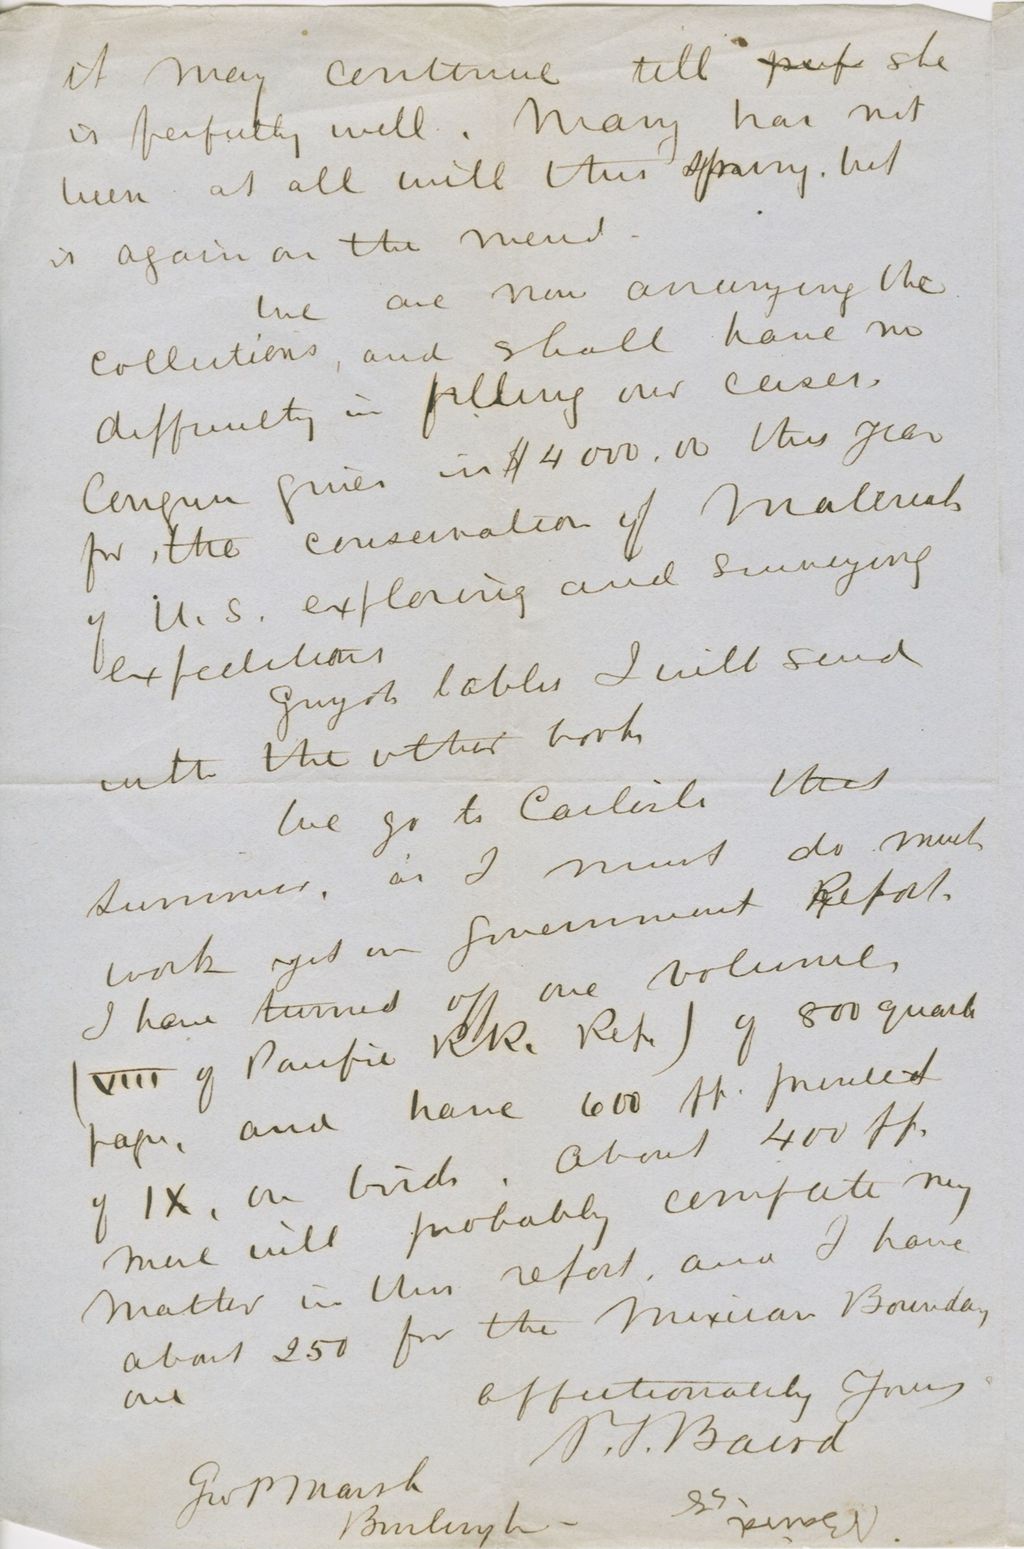 it may continue till perf she
is perfectly well. Mary has not
been at all well this spring, but
is again on the mend.
We are now arranging the
collections, and shall have no
difficulty in filling our cases.
Congress gives us $4000.00 this year
for the conservation of Materials
of U.S. exploring and surveying
expeditions
Guyots tables I will send
with the other books
We go to Carlisle this
summer, as I must do much
work yet on Government Report.
I have turned off one volume,
(VIII of Pacific R.R. Rep.) of 800 quarto
pages, and have 600 pp. printed
of IX, on birds. About 400 pp.
more will probably complete my
matter in this report, and I have
about 250 for the Mexican Boundary
one
affectionately Yours
S.F. Baird
Geo P Marsh
Burlington
Baird